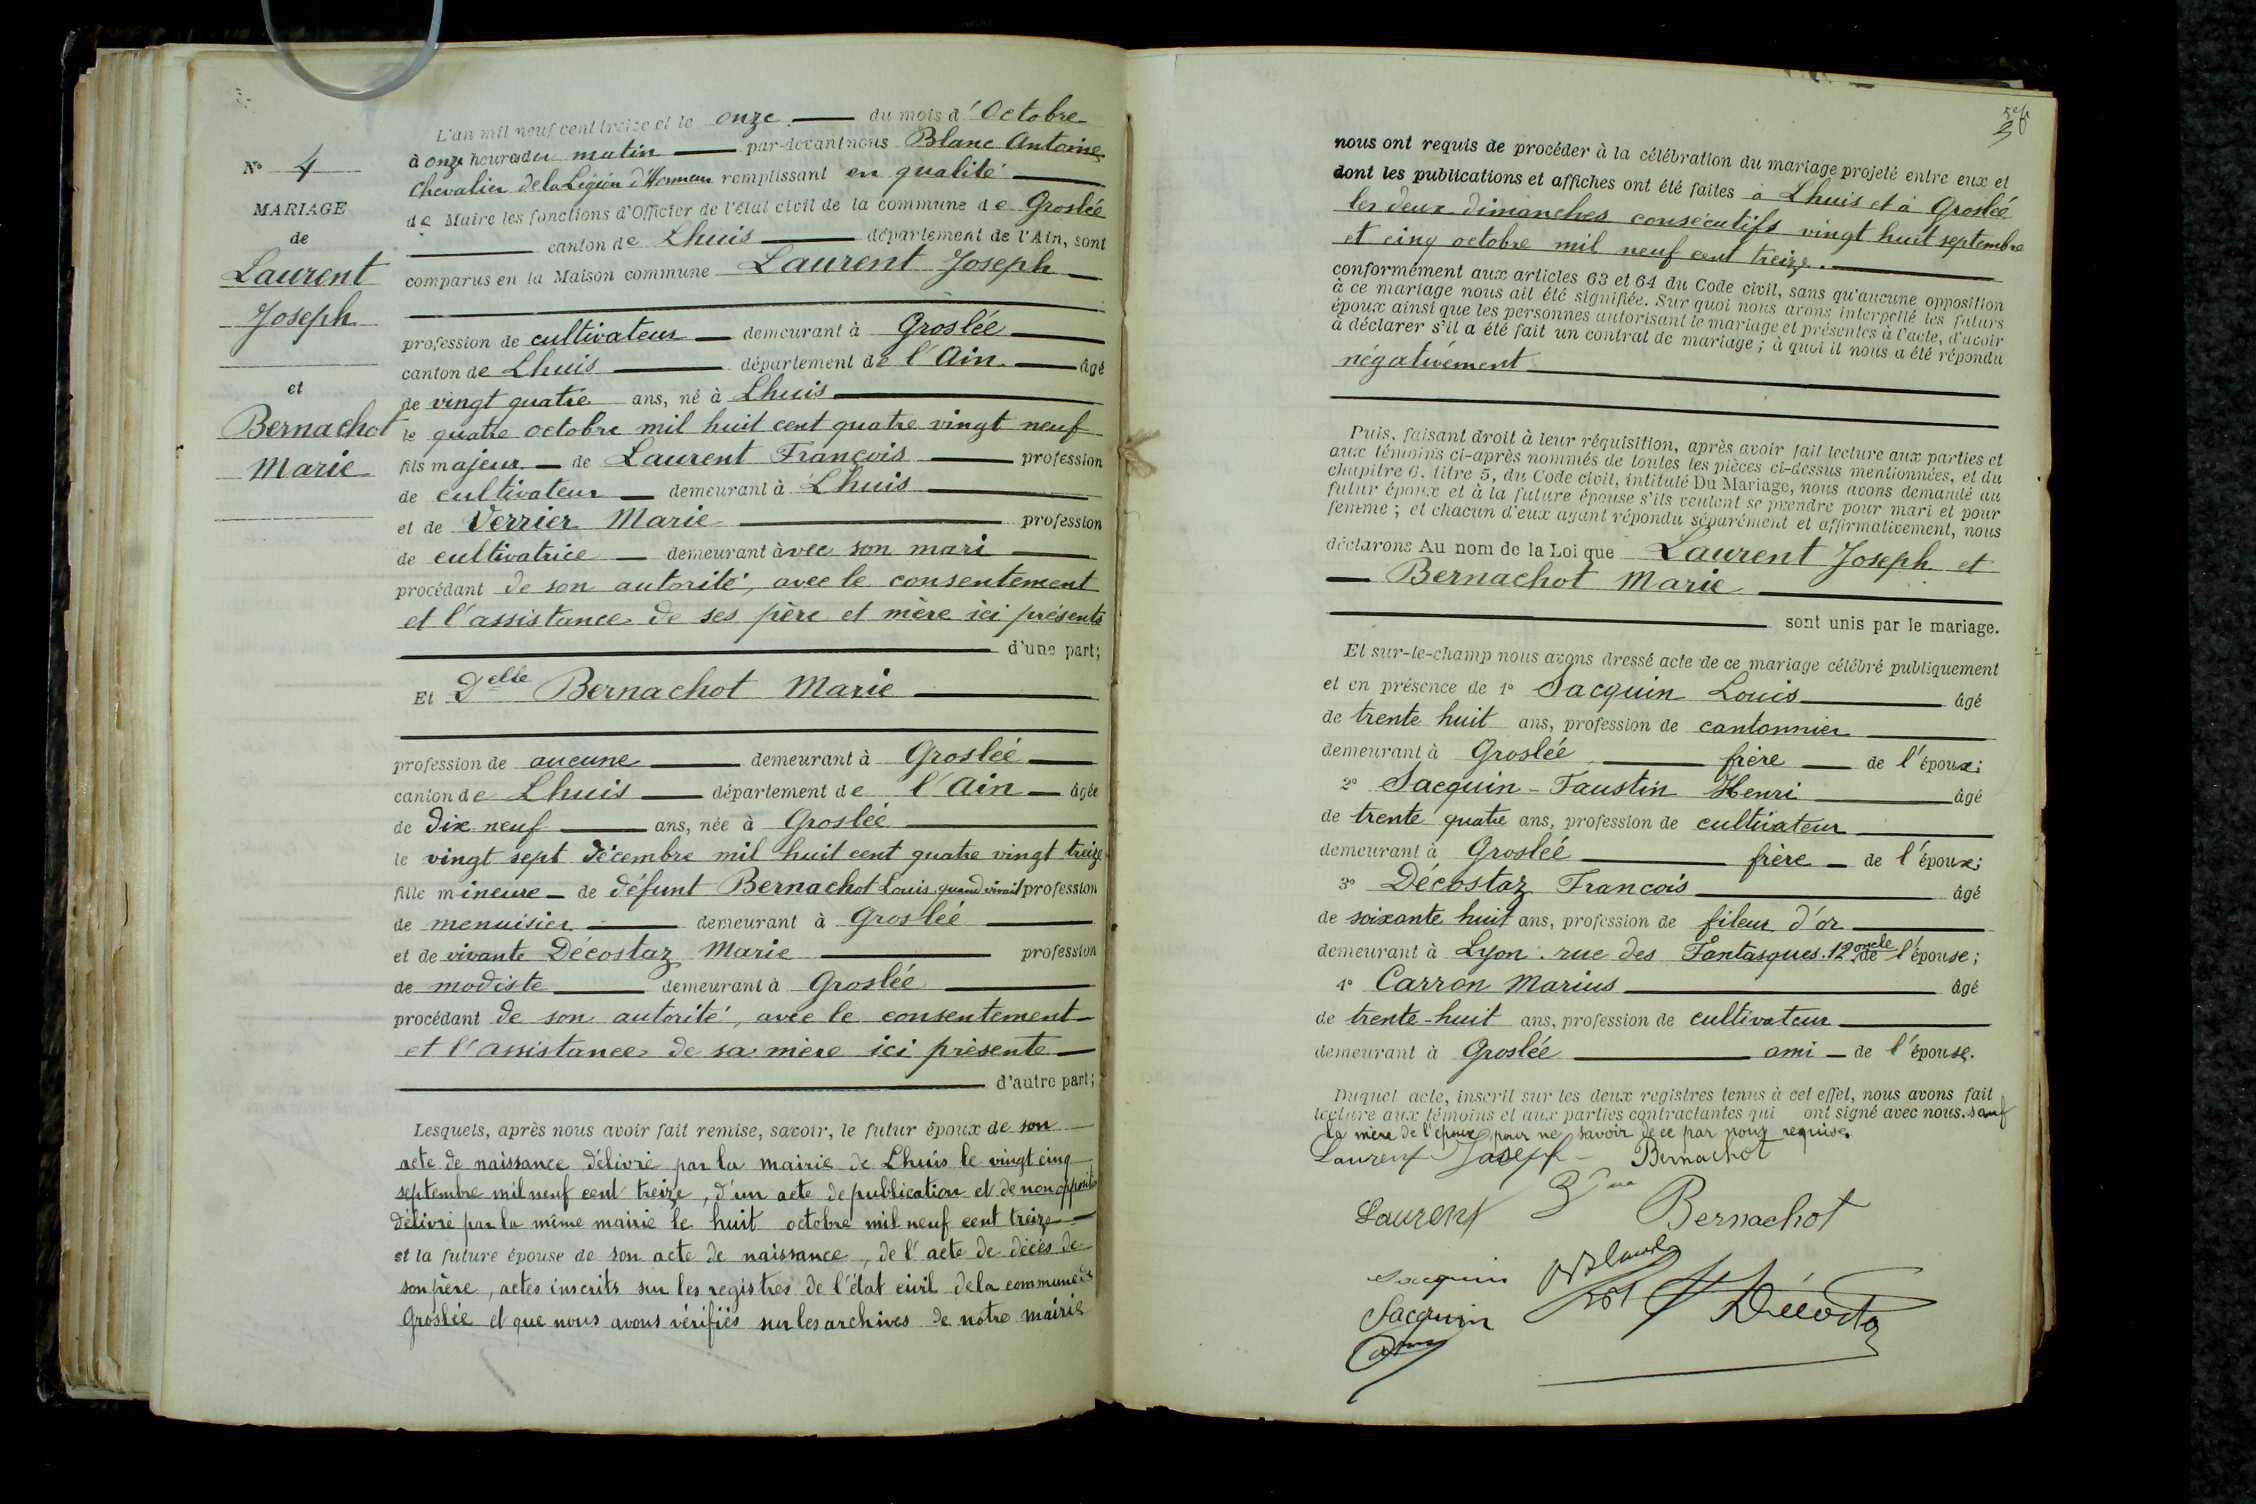 N° 4
MARIAGE
de
Laurent
Joseph
et
Bernachot
Marie
L'an mil neuf cent treize et le onze du mois d'Octobre
à onze heures du matin par-devant nous Blanc Antoine
Chevalier de la Légion d'Honneur remplissant en qualité
de Maire les fonctions d'Officier de l'état civil de la commune de Groslée
canton de Lhuis département de l'Ain, sont
comparus en la Maison commune Laurent Joseph
profession de cultivateur demeurant à Groslée
canton de Lhuis département de l'Ain. âgé
de vingt quatre ans, né à Lhuis
le quatre octobre mil huit cent quatre vingt neuf
fils majeur de Laurent François profession
de cultivateur demeurant à Lhuis
et de Verrier Marie profession
de cultivatrice demeurant avec son mari
procédant de son autorité, avec le consentement
et l'assistance de ses père et mère ici présents
d'une part;
Et Delle Bernachot Marie
profession de aucune demeurant à Groslée
canton de Lhuis département de l'Ain âgée
de dix neuf ans, née à Groslée
le vingt sept décembre mil huit cent quatre vingt treize
fille mineure de défunt Bernachot Louis quand vivait profession
de menuisier demeurant à Groslée
et de vivante Décostaz Marie profession
de modiste demeurant à Groslée
procédant de son autorité, avec le consentement
et l'assistance de sa mère ici présente
d'autre part;
Lesquels, après nous avoir fait remise, savoir, le futur époux de son
acte de naissance délivré par la mairie de Lhuis le vingt cinq
septembre mil neuf cent treize, d'un acte de publication et de non opposition
délivré par la même mairie le huit octobre mil neuf cent treize
et la future épouse de son acte de naissance, de l'acte de décès de
son père, actes inscrits sur les registres de l'état civil de la commune de
Groslée et que nous avons vérifiés sur les archives de notre mairie
nous ont requis de procéder à la célébration du mariage projeté entre eux et
dont les publications et affiches ont été faites à Lhuis et à Groslée
les deux dimanches consécutifs vingt huit septembre
et cinq octobre mil neuf cent treize.
conformément aux articles 63 et 64 du Code civil, sans qu'aucune opposition
à ce mariage nous ait été signifiée. Sur quoi nous avons interpellé les futurs
époux ainsi que les personnes autorisant le mariage et présentes à l'acte, d'avoir
à déclarer s'il a été fait un contrat de mariage; à quoi il nous a été répondu
négativement
Puis, faisant droit à leur réquisition, après avoir fait lecture aux parties et
aux témoins ci-après nommés de toutes les pièces ci-dessus mentionnées, et du
chapitre 6, titre 5, du Code civil, intitulé Du Mariage, nous avons demandé au
futur époux et à la future épouse s'ils veulent se prendre pour mari et pour
femme; et chacun d'eux ayant répondu séparément et affirmativement, nous
déclarons Au nom de la Loi que Laurent Joseph et
Bernachot Marie
sont unis par le mariage.
Et sur-le-champ nous avons dressé acte de ce mariage célébré publiquement
et en présence de 1° Sacquin Louis âgé
de trente huit ans, profession de cantonnier
demeurant à Groslée frère de l'époux;
2° Sacquin-Faustin Henri âgé
de trente quatre ans, profession de cultivateur
demeurant à Groslée frère de l'époux;
3° Décostaz Francois âgé
de soixante huit ans, profession de fileur d'or
demeurant à Lyon. rue des Fantasques.12 oncle de l'épouse;
4° Carron Marius âgé
de trente-huit ans, profession de cultivateur
demeurant à Groslée ami de l'épouse.
Duquel acte, inscrit sur les deux registres tenus à cet effet, nous avons fait
lecture aux témoins et aux parties contractantes qui ont signé avec nous. sauf
la mère de l'époux pour ne savoir de ce par nous requise.
Laurent Joseph Bernachot
Laurent Bernachot
Sacquin
Sacquin